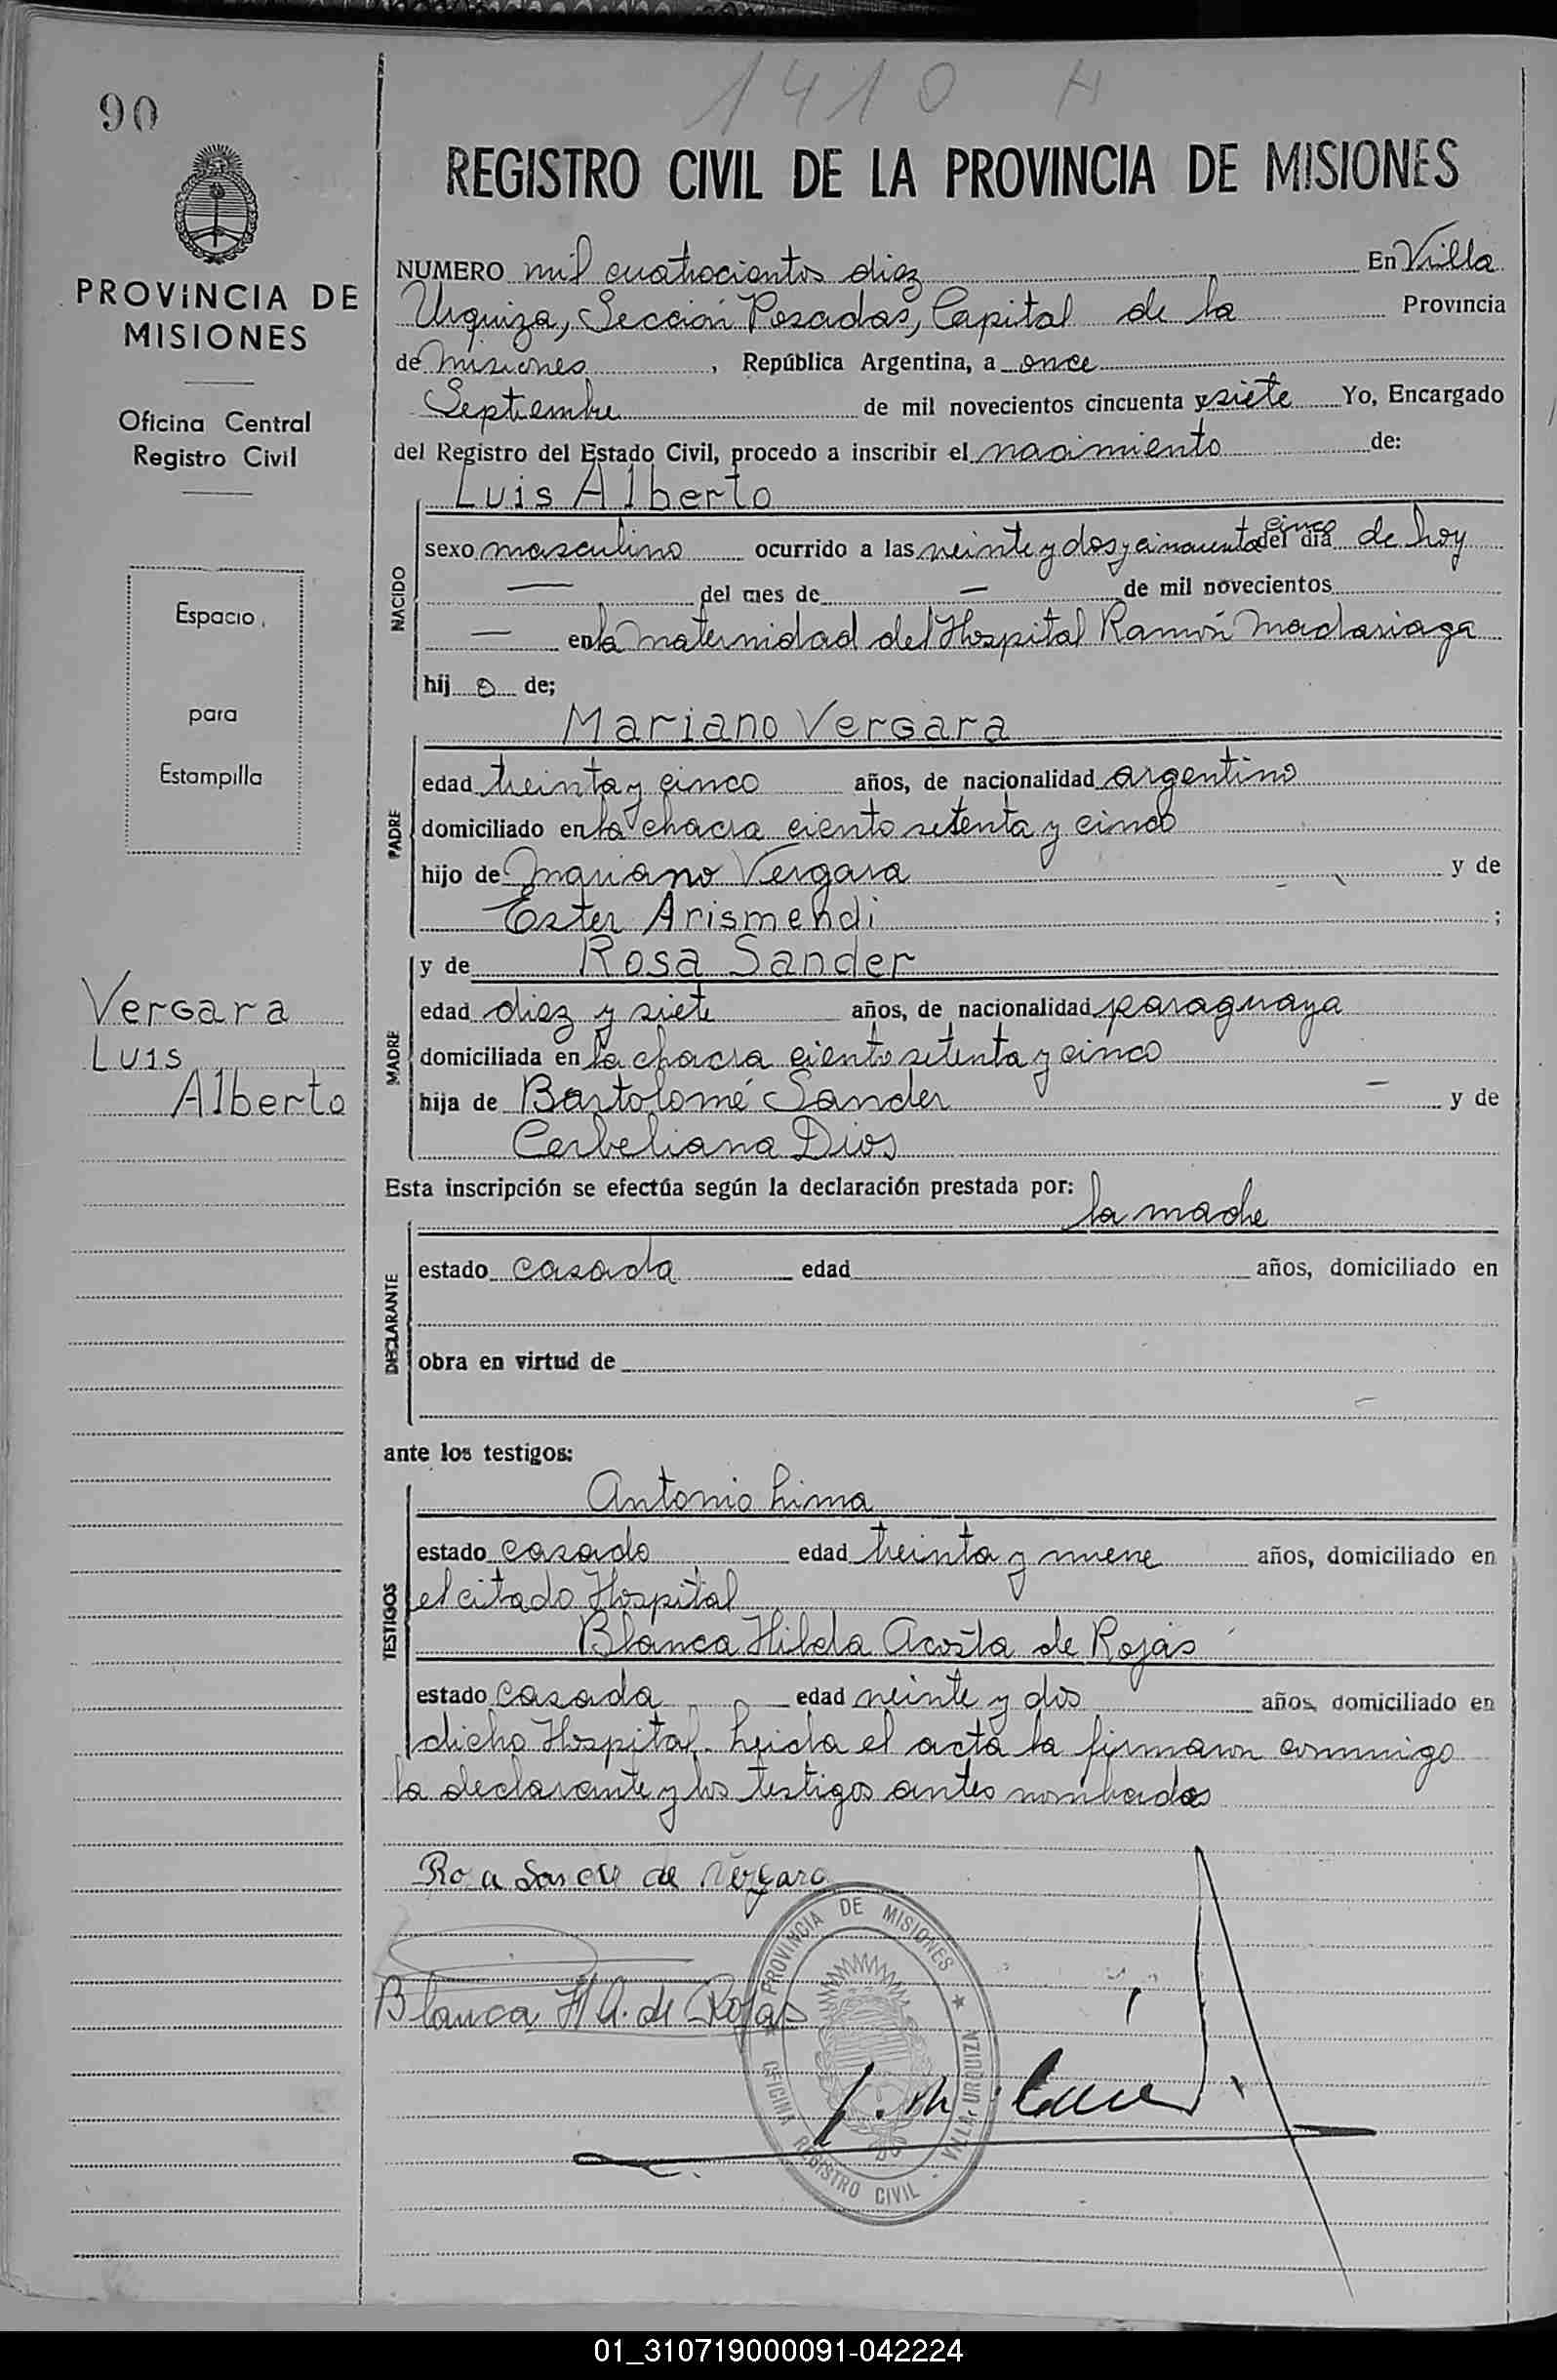 1410 H
90
REGISTRO CIVIL DE LA PROVINCIA DE MISIONES
PROVINCIA DE
MISIONES
Oficina Central
Registro Civil
Espacio
para
Estampilla
Vergara
Luis
Alberto
NUMERO mil cuatrocientos diez En Villa
Urquiza, Sección Posadas, Capital de la Provincia
de Misiones, República Argentina, a once
Septiembre de mil novecientos cincuenta y siete Yo, Encargado
del Registro del Estado Civil, procedo a inscribir el nacimiento de:
Luis Alberto
NACIDO
sexo masculino ocurrido a las veinte y dos y cincuenta y cinco del día de hoy
— del mes de — de mil novecientos
— en la maternidad del Hospital Ramón Madariaga
hij o de;
Mariano Vergara
PADRE
edad treinta y cinco años, de nacionalidad argentino
domiciliado en la chacra ciento setenta y cinco
hijo de Mariano Vergara y de
Ester Arismendi ;
y de Rosa Sander
MADRE
edad diez y siete años, de nacionalidad paraguaya
domiciliada en la chacra ciento setenta y cinco
hija de Bartolomé Sander — y de
Cerbeliana Dios
Esta inscripción se efectúa según la declaración prestada por:
la madre
DECLARANTE
estado casada edad años, domiciliado en
obra en virtud de
ante los testigos:
Antonio Lima
TESTIGOS
estado casado edad treinta y nueve años, domiciliado en
el citado Hospital
Blanca Hilda Acosta de Rojas
estado casada edad veinte y dos años, domiciliado en
dicho Hospital. Leida el acta la firmaron conmigo
la declarante y los testigos antes nombrados
Rosa Sander de Vergara
Blanca H A. de Rojas
PROVINCIA DE MISIONES
OFICINA REGISTRO CIVIL - VILLA URQUIZA
01_310719000091-042224